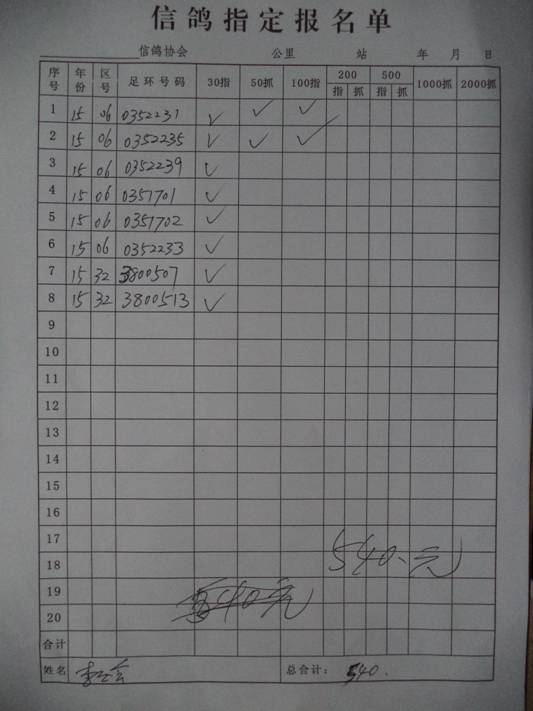 信鸽指定报名单
信鸽协会 公里 站 年 月 日
序号 年份 区号 足环号码 30指 50抓 100指 200 500 1000抓 2000抓
指 抓 指 抓
1 15 06 0352231 ✓ ✓ ✓
2 15 06 0352235 ✓ ✓ ✓
3 15 06 0352239 ✓
4 15 06 0351701 ✓
5 15 06 0351702 ✓
6 15 06 0352233 ✓
7 15 32 3800507 ✓
8 15 32 3800513 ✓
9
10
11
12
13
14
15
16
17
18 540.元
19
20
合计
姓名 总合计: 540.